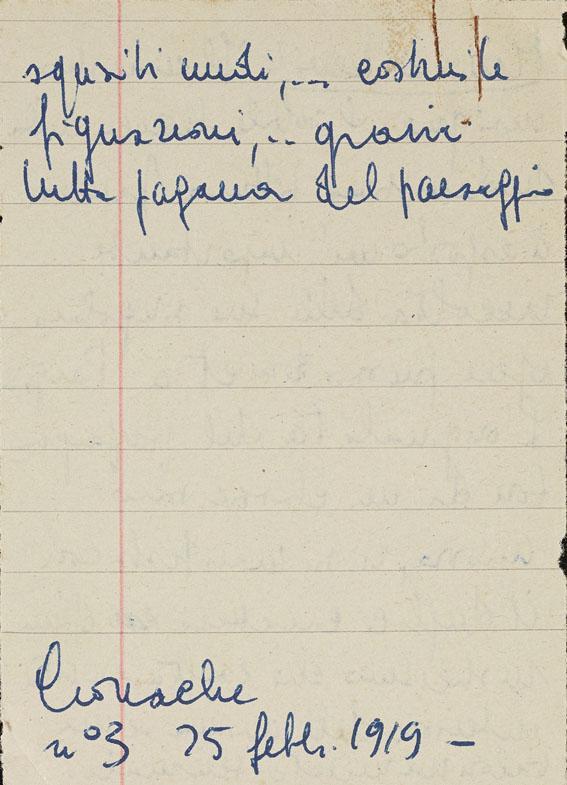 squisiti nudi, ... costruite
figurazioni, .. grazia
tutta pagana del paesaggio
Cronache
n° 3 25 febbr. 1919 -